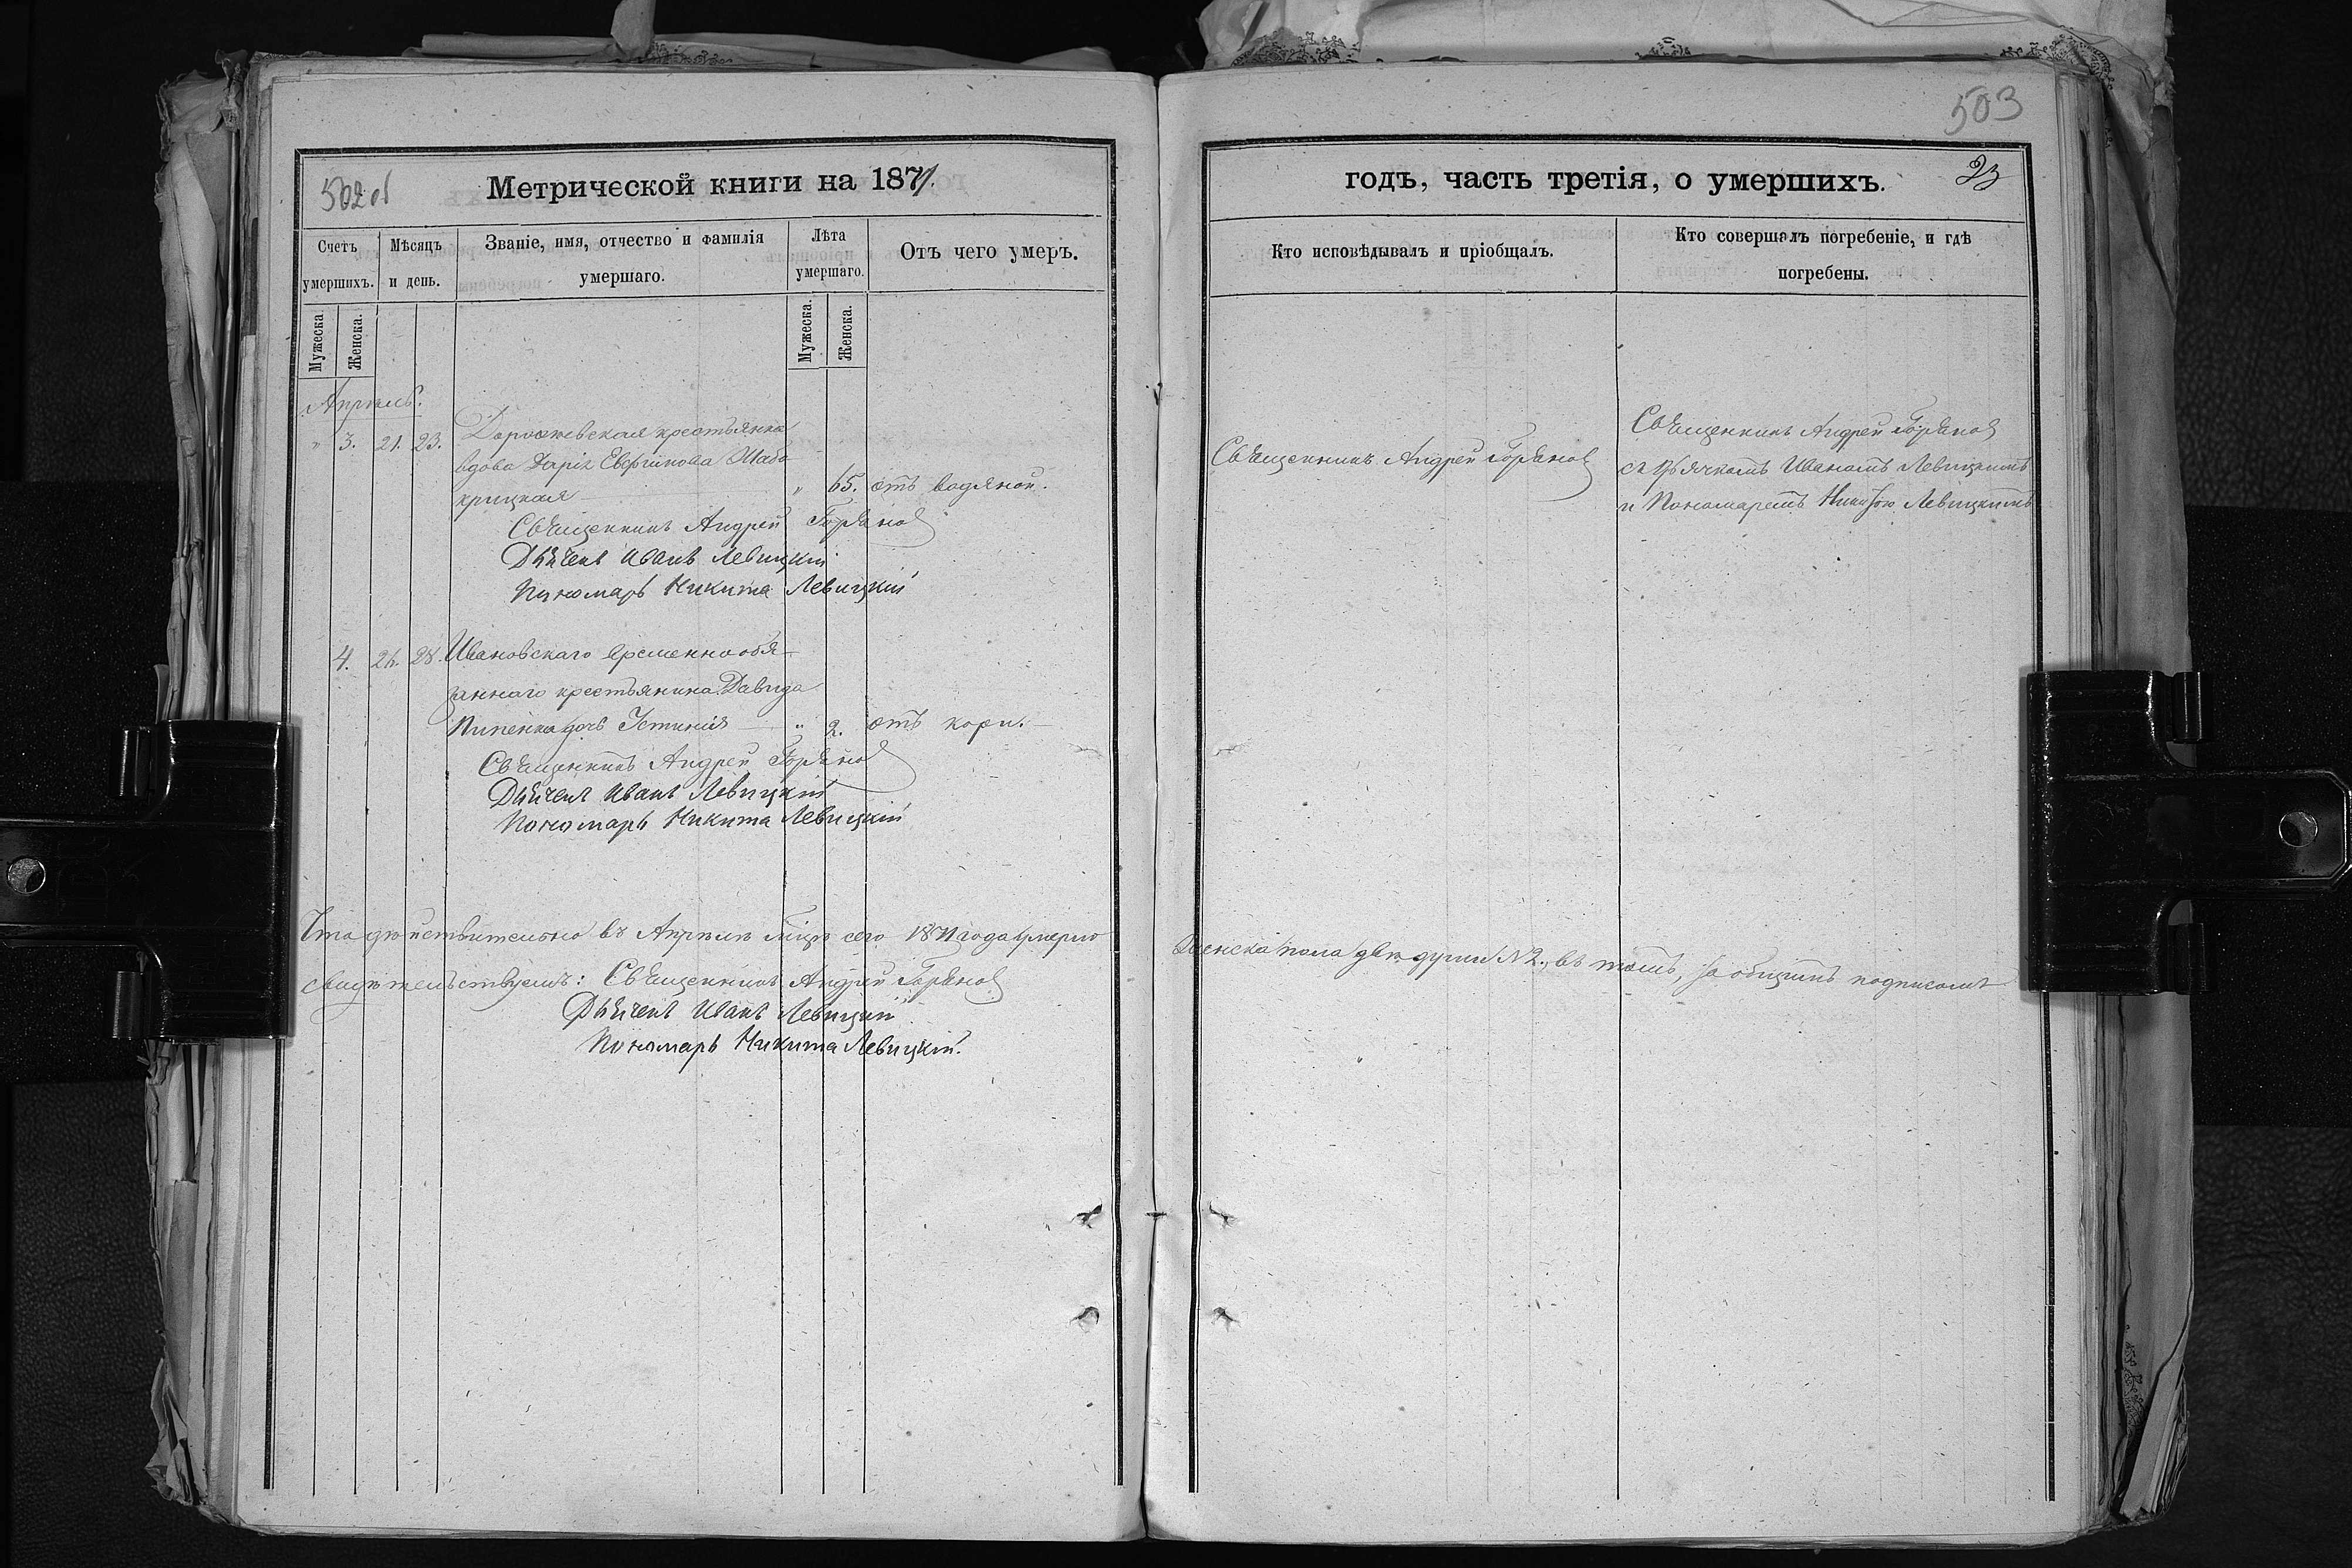 503
502 об
Метрической книги на 1871.
годъ, часть третія, о умершихъ.
23
Счетъ умершихъ.
Мѣсяцъ и день.
Званіе, имя, отчество и фамилія умершаго.
Лѣта умершаго.
Отъ чего умеръ.
Кто исповѣдывалъ и пріобщалъ.
Кто совершалъ погребеніе, и гдѣ погребены.
Мужеска.
Женска.
Мужеска.
Женска.
Апрѣль.
" 3. 21. 23. крестьянка
вдова Дарія Шабо
крицкая " 65. отъ водяной.
Священникъ Андрей Горянов
Дьячекъ Иванъ Левицкій
Пономарь Никита Левицкій
Священникъ Андрей Горянов
Священникъ Андрей Горянов
съ дьячкомъ Иваномъ Левицкимъ
и Пономаремъ Никитою Левицкимъ
4. 26. 28. Ивановскаго временно обя-
заннаго крестьянина Давида
Пипенка дочь Устинія " 2. отъ кори.
Священникъ Андрей Горянов
Дьячекъ Иванъ Левицкій
Пономарь Никита Левицкій
Что дѣйствительно въ Апрѣлѣ мцѣ сего 1871 года умерло
женска пола двѣ души № 2., въ томъ, за общимъ подписомъ
свидѣтельствуемъ: Священникъ Андрей Горянов
Дьячекъ Иванъ Левицкій
Пономарь Никита Левицкій.